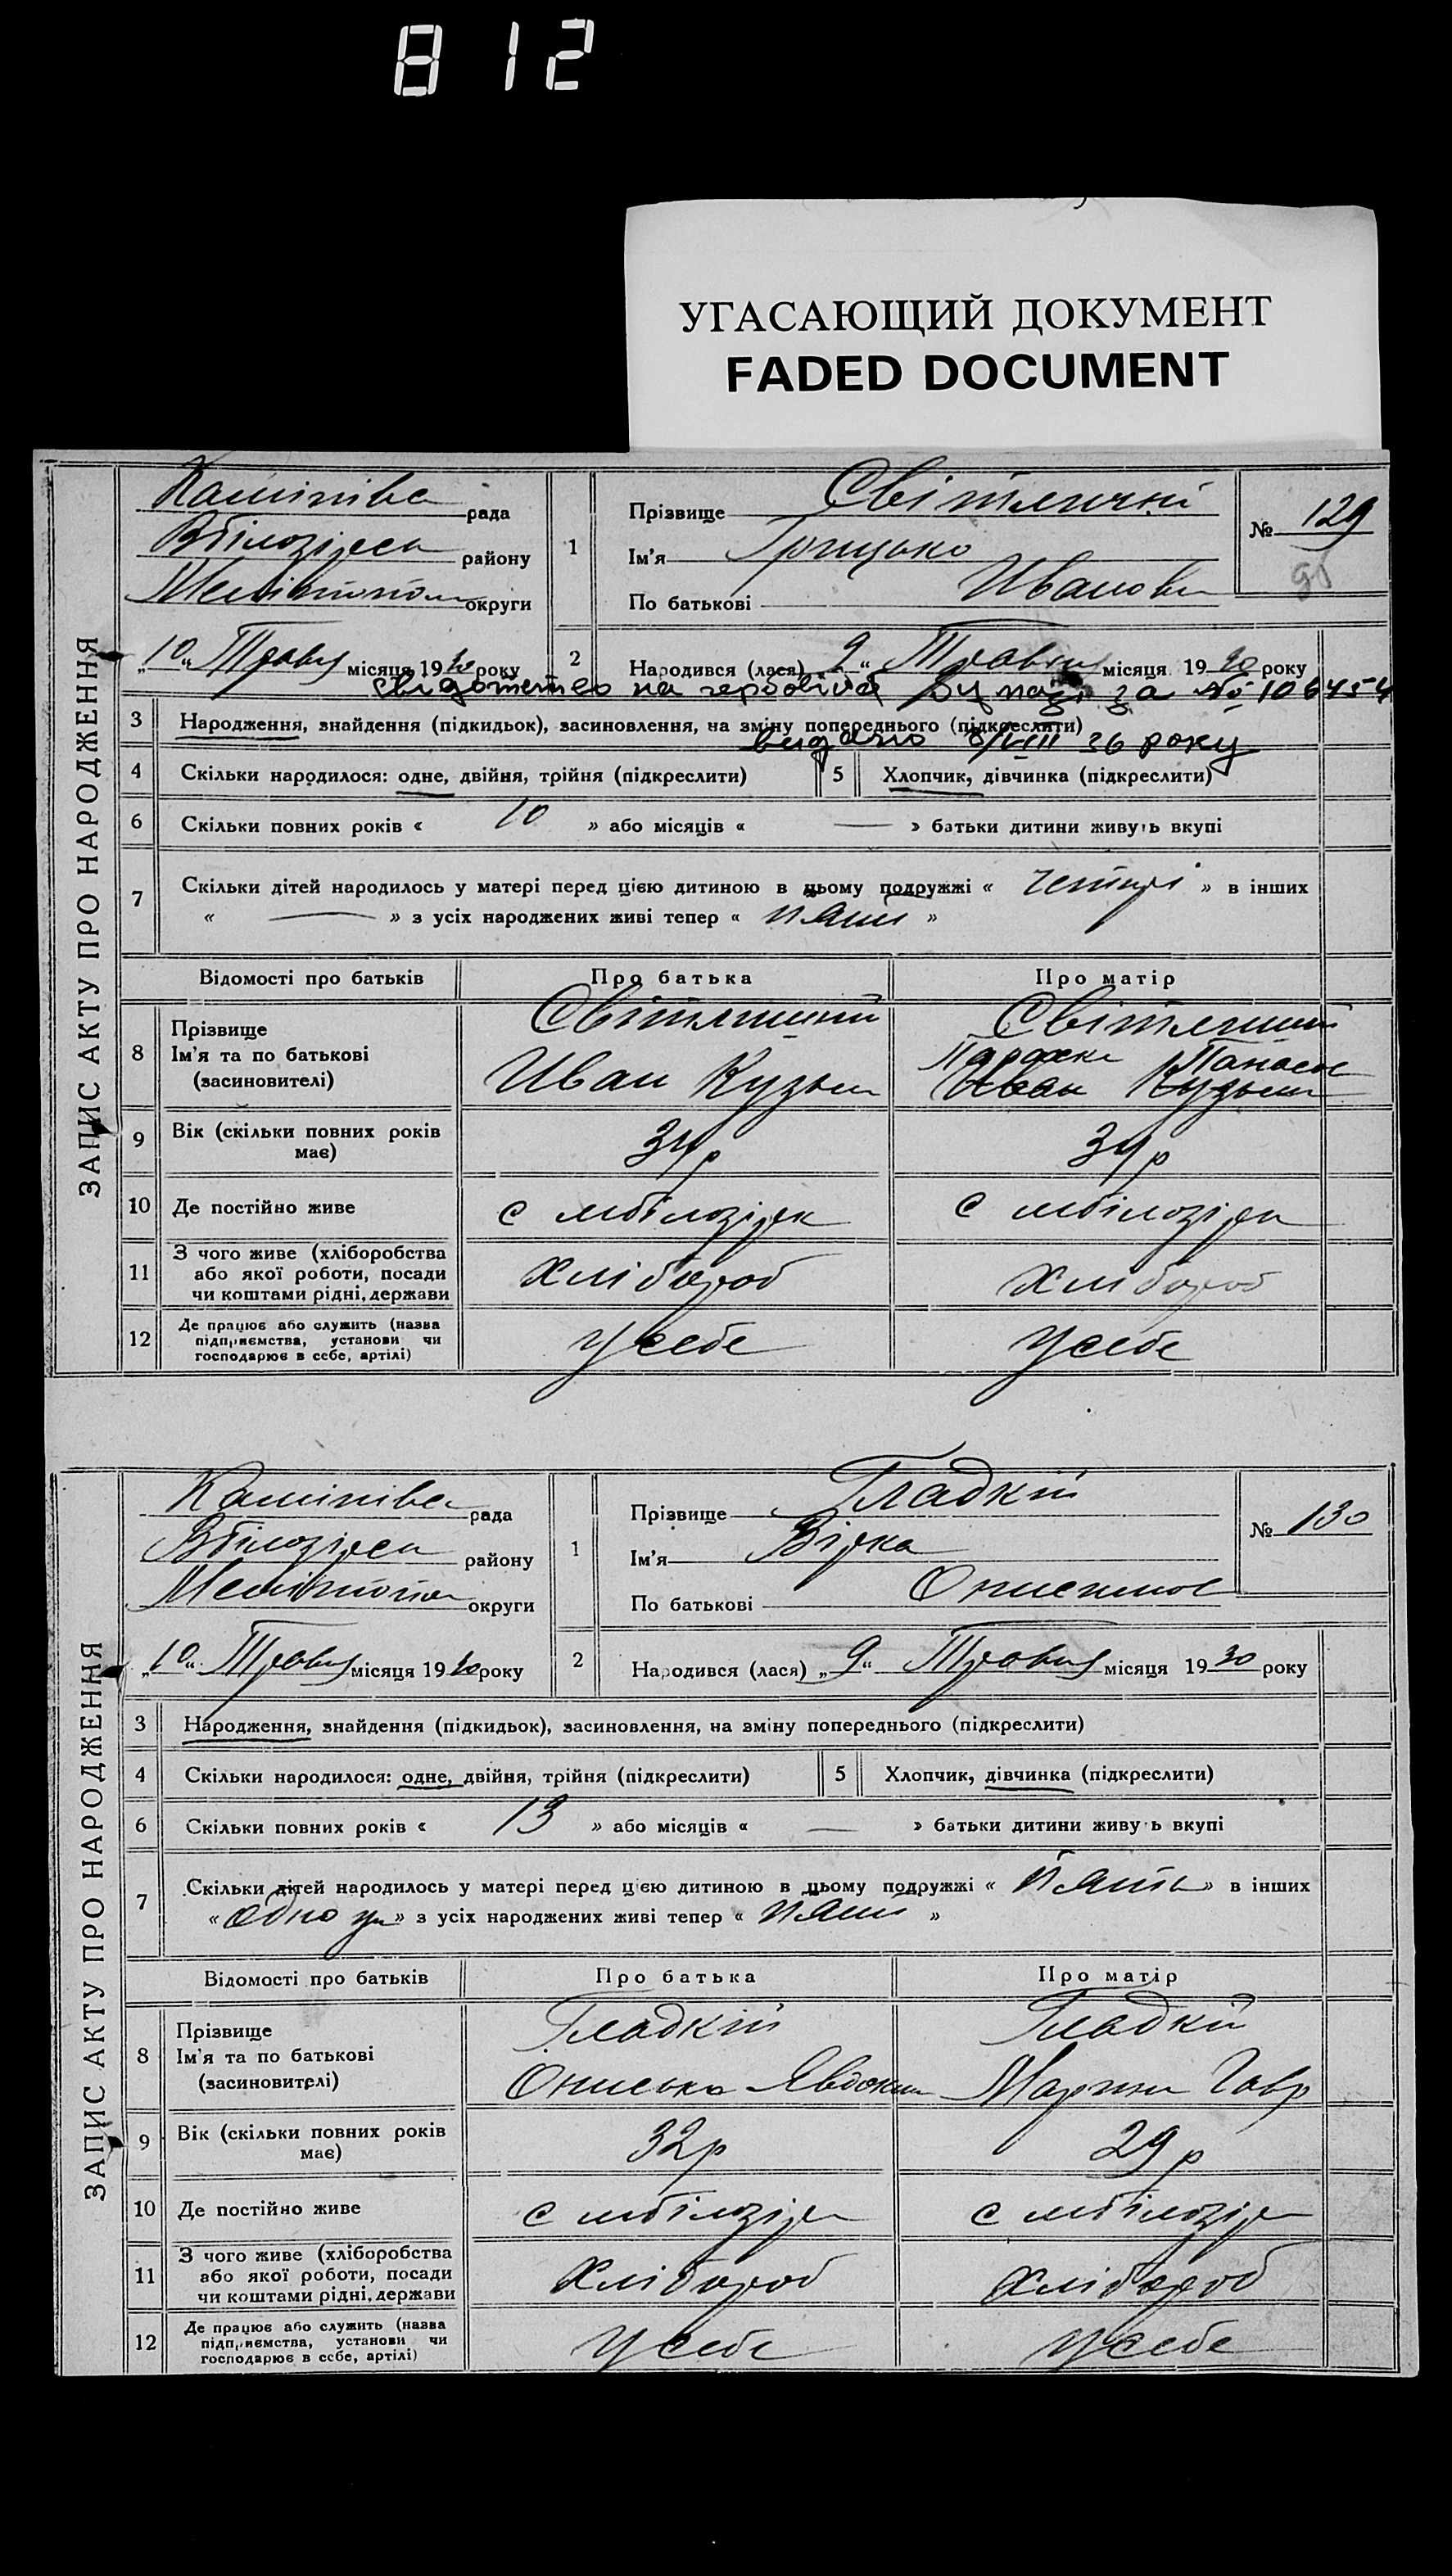 812
УГАСАЮЩИЙ ДОКУМЕНТ
FADED DOCUMENT
ЗАПИС АКТУ ПРО НАРОДЖЕННЯ
Камінівс рада
Вбілозірсь району
Мелітопол округи
„10“ Травня місяця 1930 року
1
Прізвище Світличній
Ім'я Грицько
По батькові Иванови
№ 129
2
Народився (лася) 9 “ Травня місяця 1930 року
свідотство на гербовій бумазі за № 106454
видано 8/VIII 36 року
3 Народження, знайдення (підкидьок), засиновлення, на зміну попереднього (підкреслити)
4 Скільки народилося: одне, двійня, трійня (підкреслити) 5 Хлопчик, дівчинка (підкреслити)
6 Скільки повних років « 10 » або місяців « — » батьки дитини живуть вкупі
7 Скільки дітей народилось у матері перед цією дитиною в цьому подружжі « четирі » в інших
« — » з усіх народжених живі тепер « пять »
Відомості про батьків Про батька Про матір
8 Прізвище
Ім'я та по батькові
(засновителі)
Світличний
Иван Кузьм
Світлични
Параска Панасов
Иван Кузьм
9 Вік (скільки повних років має) 34р 34р
10 Де постійно живе с мбілозірк с мбілозірк
11 З чого живе (хліборобства або якої роботи, посади чи коштами рідні, держави Хлібороб Хлібороб
12 Де працює або служить (назва підприємства, установи чи господарює в себе, артілі) у себе у себе
ЗАПИС АКТУ ПРО НАРОДЖЕННЯ
Камінівс рада
Вбілозірсь району
Мелітопол округи
„10“ Травня місяця 1930 року
1
Прізвище Гладкій
Ім'я Вірка
По батькові Онисимов
№ 130
2
Народився (лася) „9“ Травня місяця 1930 року
3 Народження, знайдення (підкидьок), засиновлення, на зміну попереднього (підкреслити)
4 Скільки народилося: одне, двійня, трійня (підкреслити) 5 Хлопчик, дівчинка (підкреслити)
6 Скільки повних років « 13 » або місяців « — » батьки дитини живуть вкупі
7 Скільки дітей народилось у матері перед цією дитиною в цьому подружжі « пять » в інших
« одно » з усіх народжених живі тепер « пять »
Відомості про батьків Про батька Про матір
8 Прізвище
Ім'я та по батькові
(засиновителі)
Гладкій
Ониська Явдоким
Гладкій
Марина Гавр
9 Вік (скільки повних років має) 32р 29р
10 Де постійно живе с мбілозірк с мбілозірк
11 З чого живе (хліборобства або якої роботи, посади чи коштами рідні, держави Хлібороб Хлібороб
12 Де працює або служить (назва підприємства, установи чи господарює в себе, артілі) у себе у себе